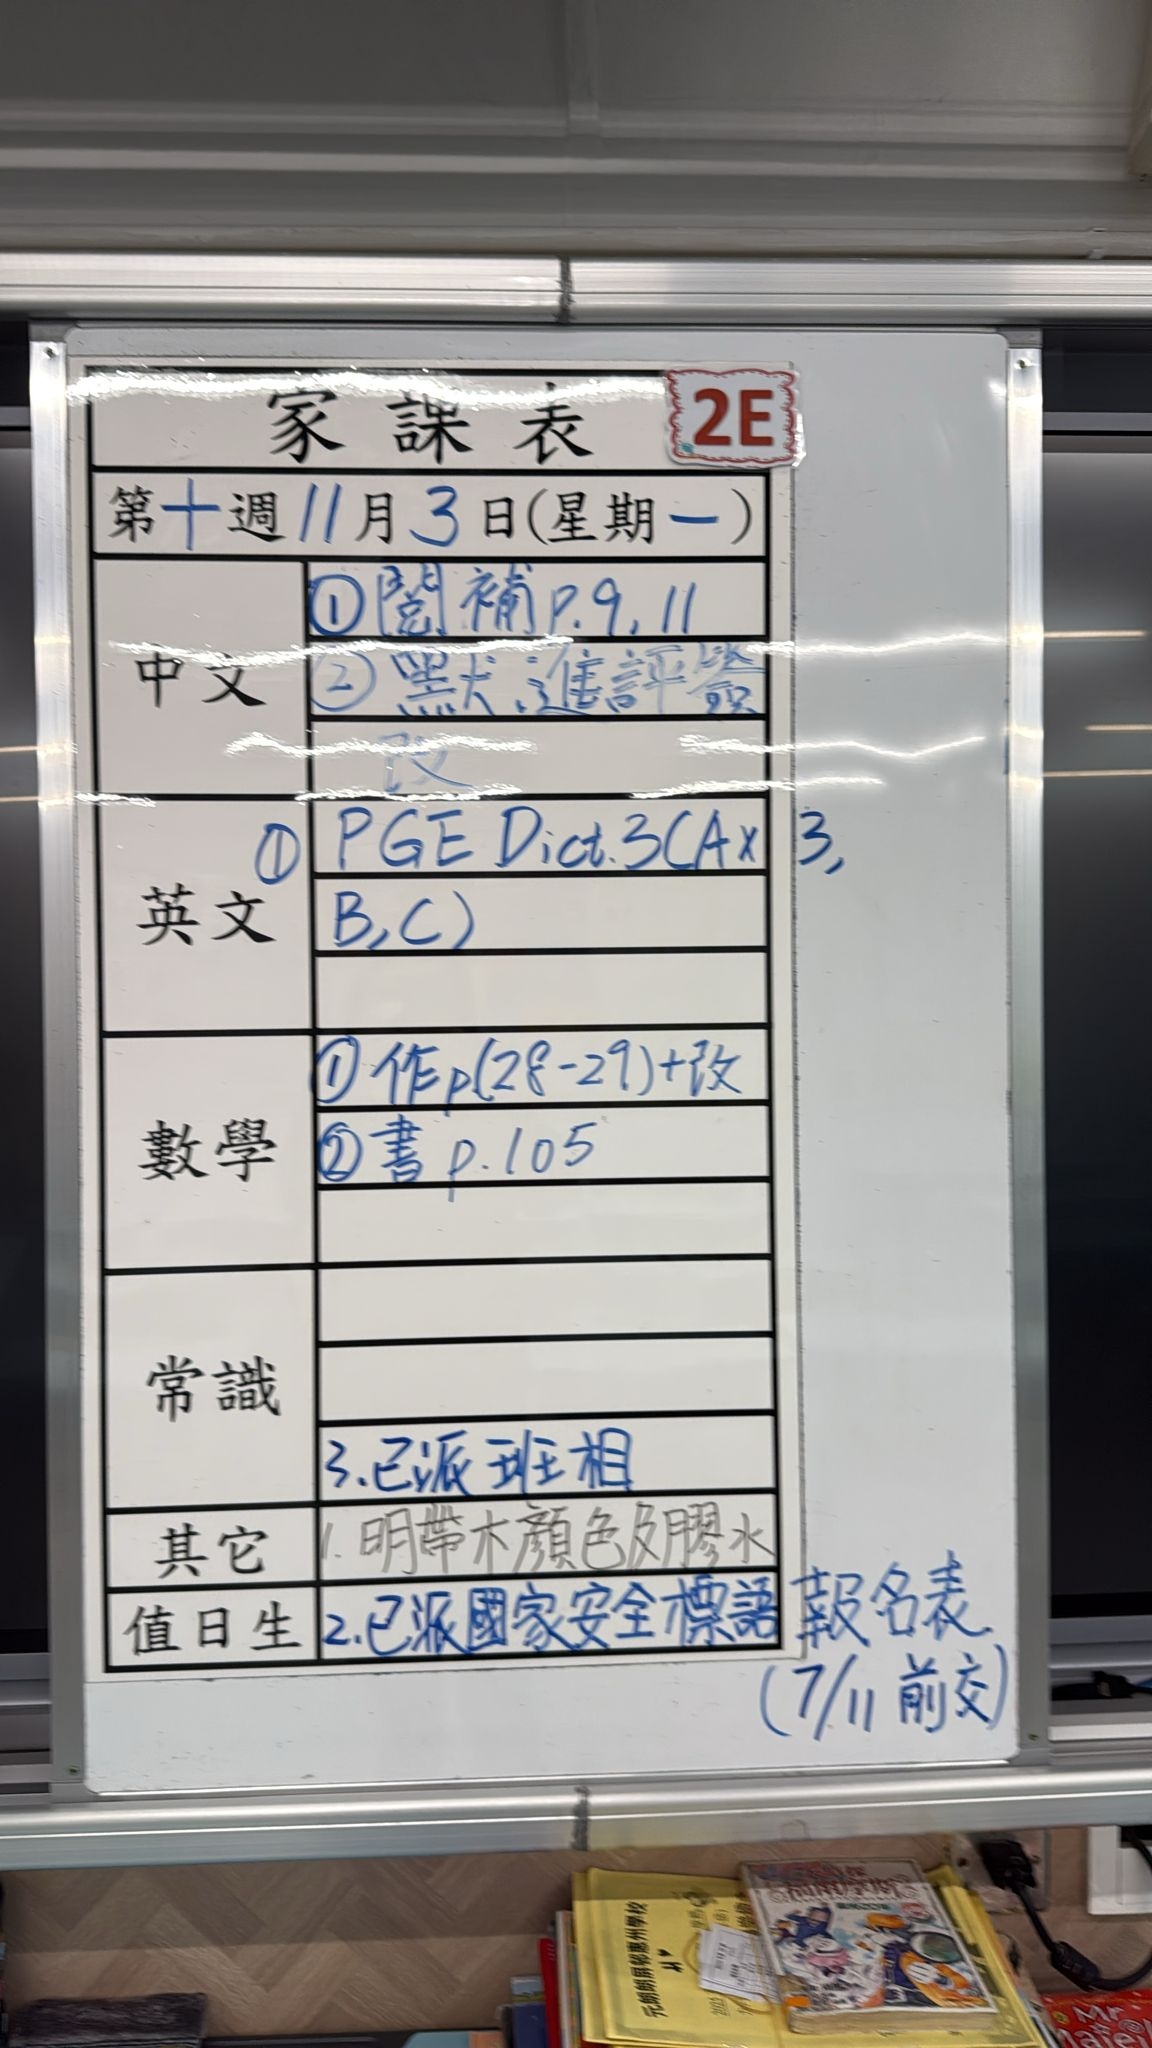 家課表 2E
第十週11月3日(星期一)
中文
①閱補p.9, 11
②默進評簽
改
英文
① PGE Dict.3(Ax3,
B,C)
數學
①作p(28-29)+改
②書p.105
常識
3.已派班相
其它
1.明帶木顏色及膠水
值日生
2.已派國家安全標語報名表
(7/11前交)
元朗朗屏邨惠州學校
Mr